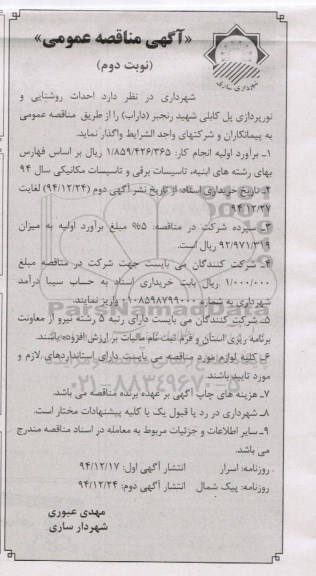 «آگهی مناقصه عمومی»
(نوبت دوم)
شهرداری ساری
شهرداری در نظر دارد احداث روشنایی و
نورپردازی پل کابلی شهید رنجبر (داراب) را از طریق مناقصه عمومی
به پیمانکاران و شرکتهای واجد الشرایط واگذار نماید.
۱_ برآورد اولیه انجام کار: ۱/۸۵۹/۴۲۶/۳۶۵ ریال بر اساس فهارس
بهای رشته های ابنیه، تاسیسات برقی و تاسیسات مکانیکی سال ۹۴
۲_ تاریخ خریداری اسناد: از تاریخ نشر آگهی دوم (۹۴/۱۲/۲۴) لغایت
۹۴/۱۲/۲۷
۳_ سپرده شرکت در مناقصه: ۵% مبلغ برآورد اولیه به میزان
۹۲/۹۷۱/۳۱۹ ریال است.
۴_ شرکت کنندگان می بایست جهت شرکت در مناقصه مبلغ
۱/۰۰۰/۰۰۰ ریال بابت خریداری اسناد به حساب سیبا درآمد
شهرداری به شماره ۰۱۰۸۵۹۸۷۹۹۰۰۰ واریز نمایند.
۵_ شرکت کنندگان می بایست دارای رتبه ۵ رشته نیرو از معاونت
برنامه ریزی استان و فرم ثبت نام مالیات بر ارزش افزوده باشند.
۶_ کلیه لوازم مورد مناقصه می بایست دارای استانداردهای لازم و
مورد تایید باشند.
۷_ هزینه های چاپ آگهی بر عهده برنده مناقصه می باشد.
۸_ شهرداری در رد یا قبول یک یا کلیه پیشنهادات مختار است.
۹_ سایر اطلاعات و جزئیات مربوط به معامله در اسناد مناقصه مندرج
می باشد.
روزنامه: اسرار انتشار آگهی اول: ۹۴/۱۲/۱۷
روزنامه: پیک شمال انتشار آگهی دوم: ۹۴/۱۲/۲۴
مهدی عبوری
شهردار ساری
ParsNamadData
۰۲۱-۸۸۳۴۹۶۷۰-۵